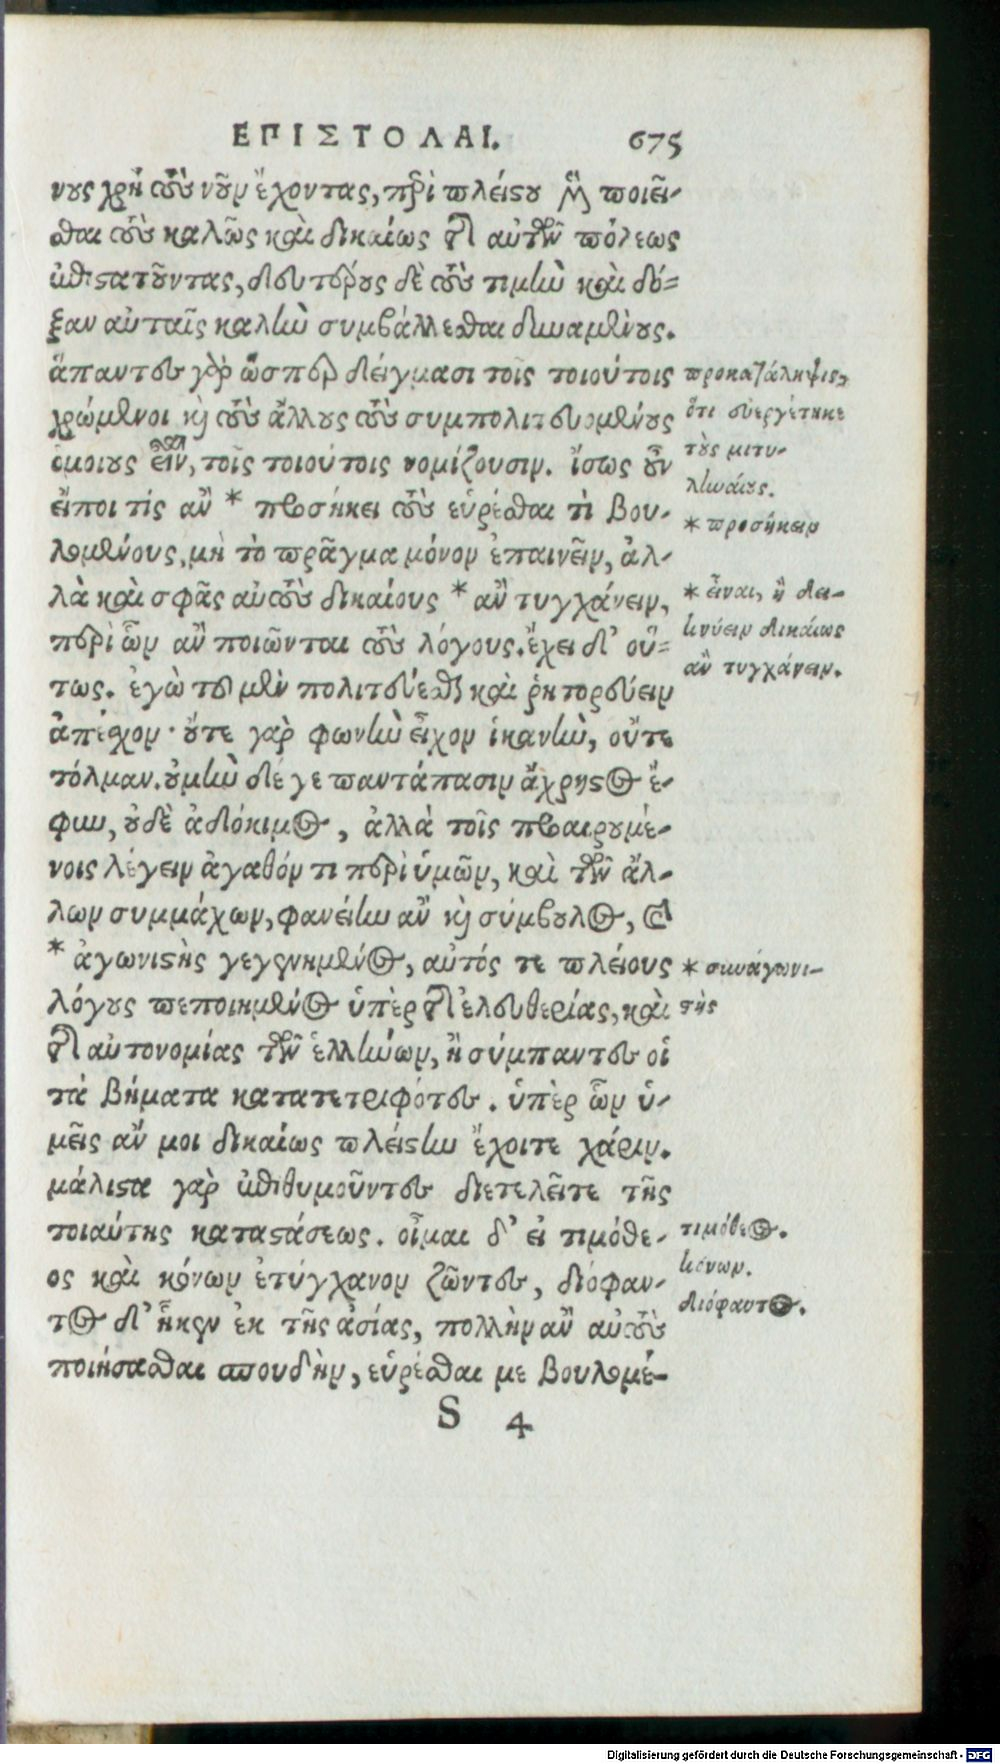 ΕΠΙΣΤΟΛΑΙ. 675
νους χρὴ τοὺς νοῦν ἔχοντας, περὶ πλείστου μὲν ποιεῖ-
σθαι τοὺς καλῶς καὶ δικαίως τῆς αὑτῶν πόλεως
ἐπιστατοῦντας, δευτέρους δὲ τοὺς τιμὴν καὶ δό-
ξαν αὐταῖς καλὴν συμβάλλεσθαι δυναμένους.
ἅπαντες γὰρ ὥσπερ δείγμασι τοῖς τοιούτοις
χρώμενοι καὶ τοὺς ἄλλους τοὺς συμπολιτευομένους
ὁμοίους εἶναι, τοῖς τοιούτοις νομίζουσιν. ἴσως οὖν
εἴποι τίς ἂν * προσήκει τοὺς εὑρέσθαι τὶ βου-
λομένους, μὴ τὸ πρᾶγμα μόνον ἐπαινεῖν, ἀλ-
λὰ καὶ σφᾶς αὐτοὺς δικαίους * ἂν τυγχάνειν,
περὶ ὧν ἂν ποιῶνται τοὺς λόγους. ἔχει δ' οὕ-
τως. ἐγὼ τοῦ μὲν πολιτεύεσθαι καὶ ῥητορεύειν
ἀπέσχον· οὔτε γὰρ φωνὴν εἶχον ἱκανὴν, οὔτε
τόλμαν. οὐμὴν δέ γε παντάπασιν ἄχρηστος ἔ-
φυν, οὐδὲ ἀδόκιμος, ἀλλὰ τοῖς προαιρουμέ-
νοις λέγειν ἀγαθόν τι περὶ ὑμῶν, καὶ τῶν ἄλ-
λων συμμάχων, φανείην ἂν καὶ σύμβουλος, καὶ
* ἀγωνιστὴς γεγενημένος, αὐτός τε πλείους
λόγους πεποιημένος ὑπὲρ τῆς ἐλευθερίας, καὶ
τῆς αὐτονομίας τῶν ἑλλήνων, ἢ σύμπαντες οἱ
τὰ βήματα κατατετριφότες. ὑπὲρ ὧν ὑ-
μεῖς ἄν μοι δικαίως πλείστην ἔχοιτε χάριν.
μάλιστα γὰρ ἐπιθυμοῦντες διετελεῖτε τῆς
τοιαύτης καταστάσεως. οἶμαι δ' εἰ τιμόθε-
ος καὶ κόνων ἐτύγχανον ζῶντες, διόφαν-
τος δ' ἧκεν ἐκ τῆς ἀσίας, πολλὴν ἂν αὐτοὺς
ποιήσασθαι σπουδὴν, εὑρέσθαι με βουλομέ-
S 4
προκατάληψις,
ὅτι εὐεργέτηκε
τοὺς μιτυ-
ληναίους.
* προσήκειν
* εἶναι, ἢ δει-
κνύειν δικαίως
ἂν τυγχάνειν.
* συναγωνι-
στής
τιμόθεος.
κόνων.
διόφαντος.
Digitalisierung gefördert durch die Deutsche Forschungsgemeinschaft - DFG